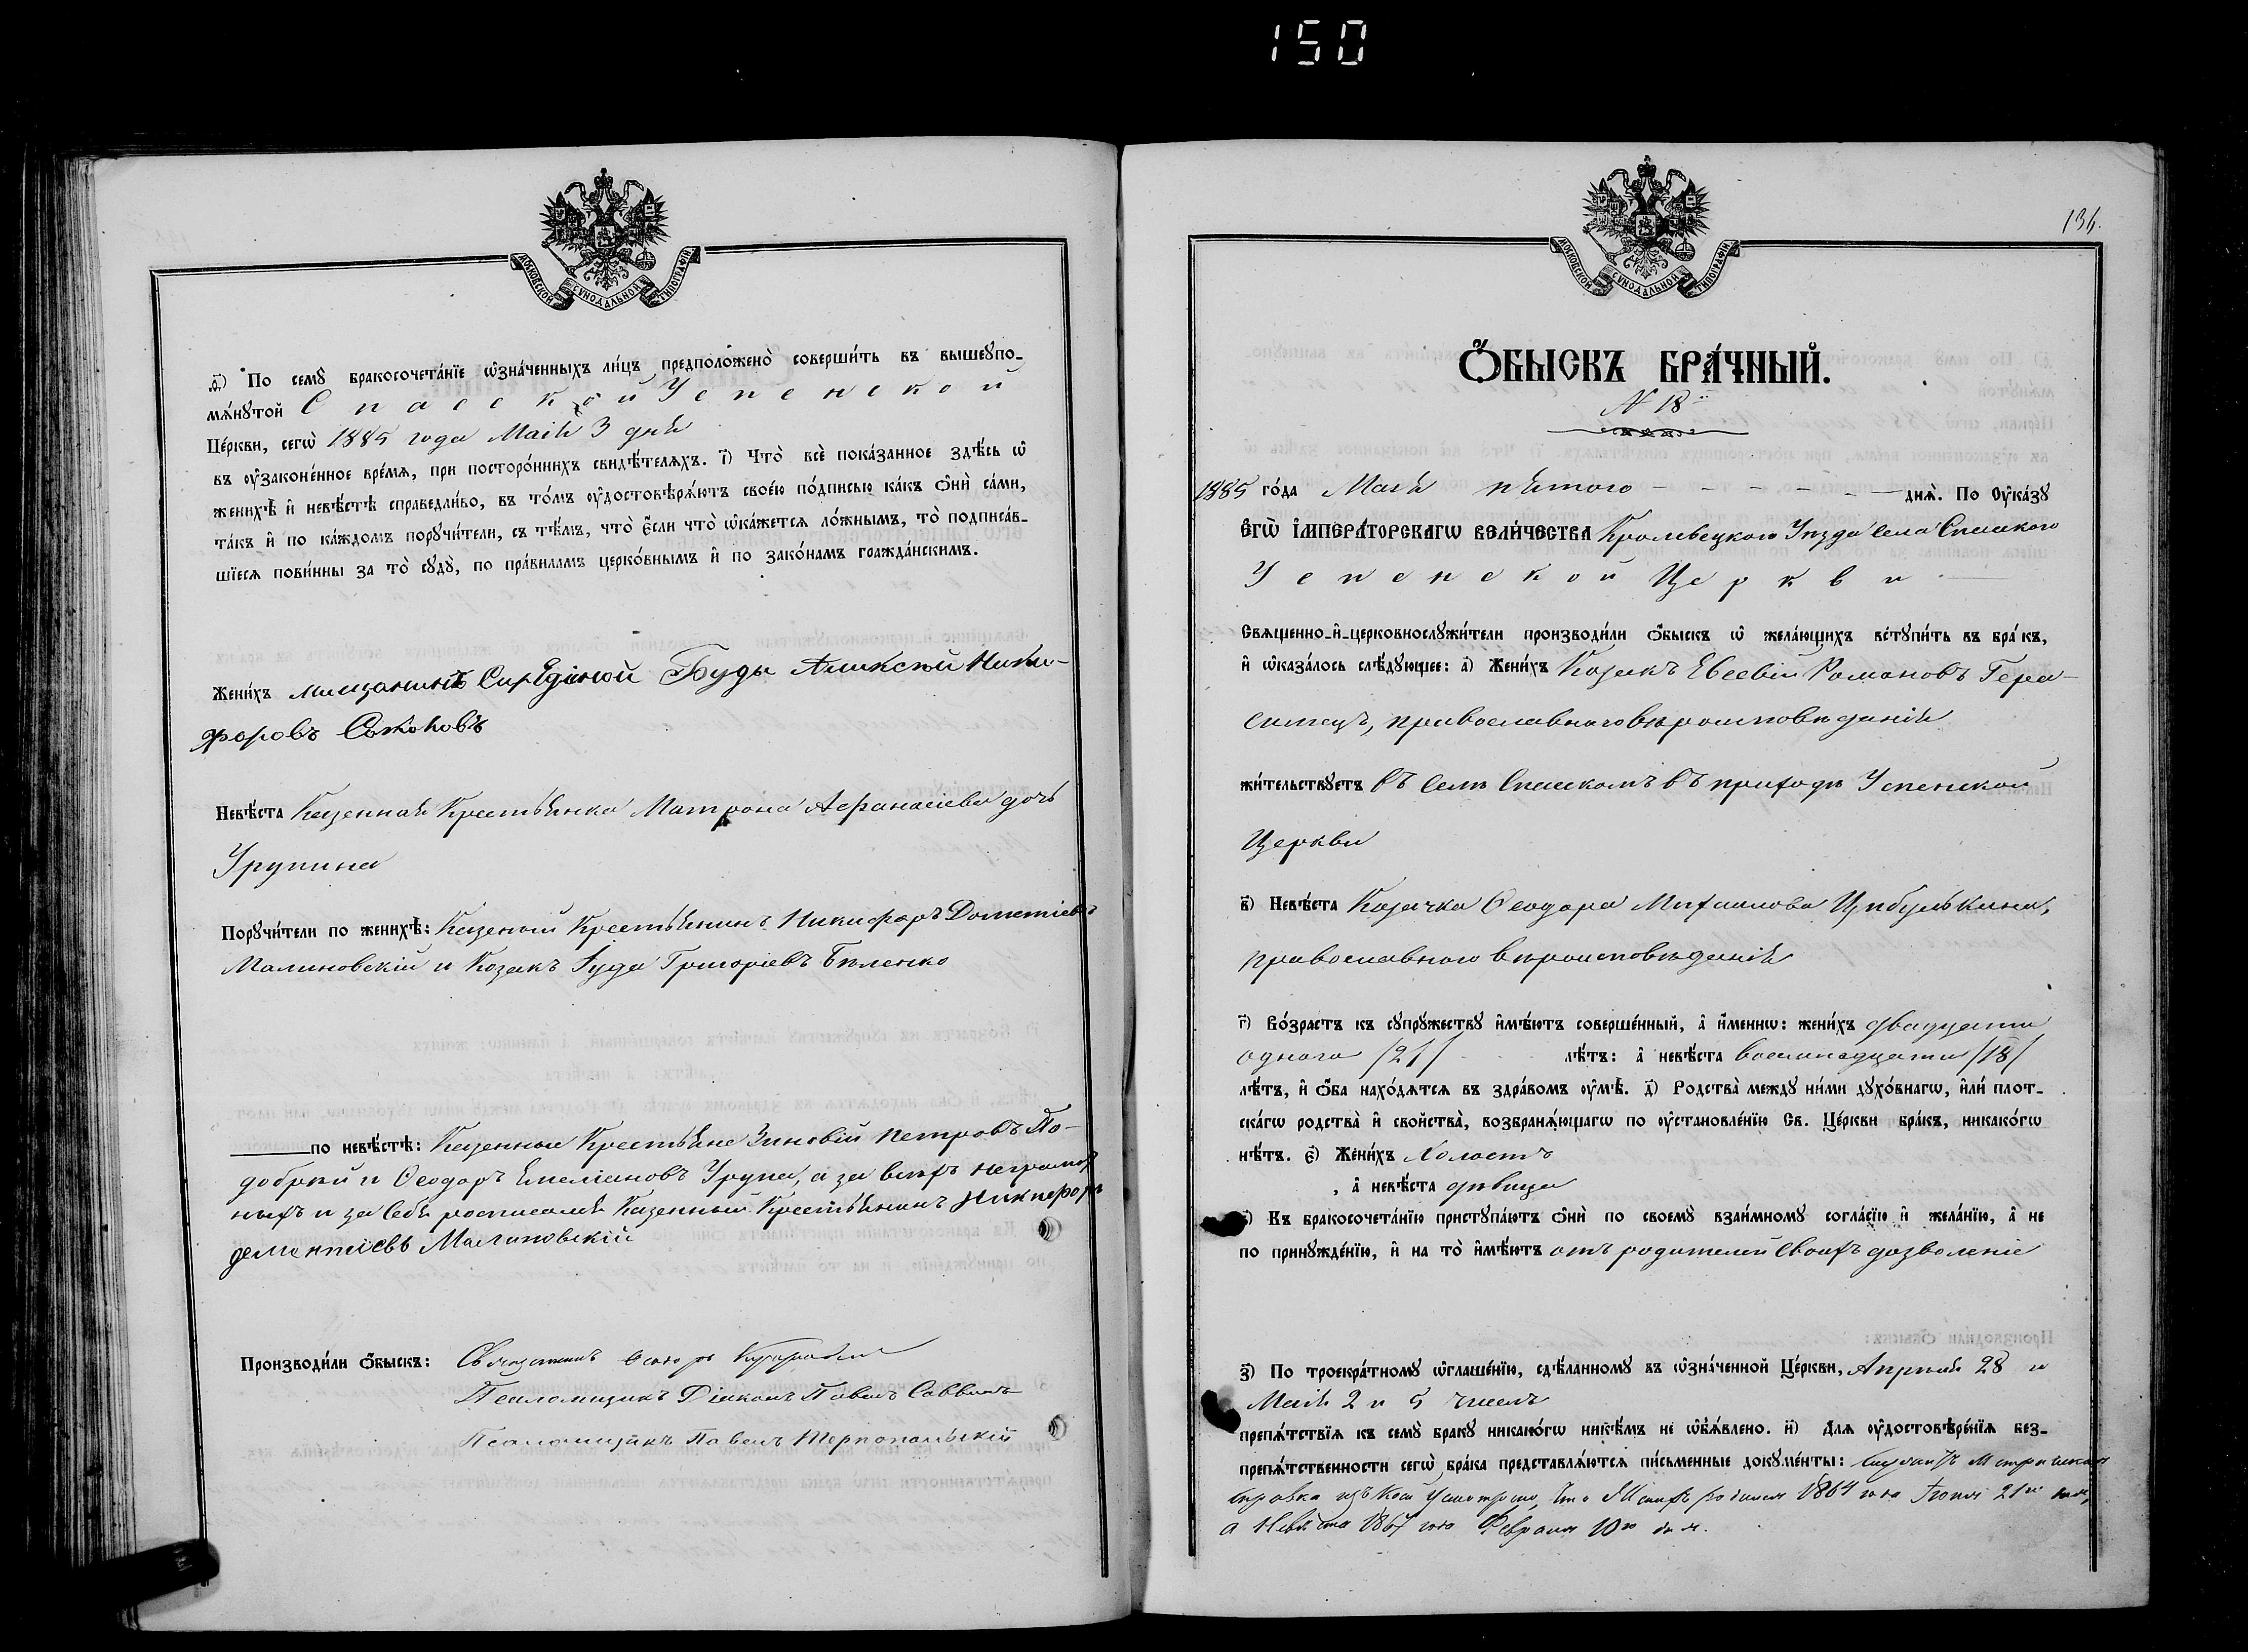 150
МОСКОВСКОЙ СУНОДАЛЬНОЙ ТИПОГРАФІИ
ѳ҃) По семꙋ̀ бракосочета́нїе ѡ҆зна́ченныхъ ли́цъ предположено̀ соверши́ть въ вышеꙋпо-
мѧ́нꙋтой Спасской Успенской
Це́ркви, сегѡ̀ 1885 года Маія 3 дня
въ ᲂу҆законе́нное вре́мѧ, при посторо́ннихъ свидѣ́телѧхъ. і҃) Что̀ всѐ пока́занное здѣ́сь ѡ҆
женихѣ̀ и҆ невѣ́стѣ справедли́во, въ то́мъ ᲂу҆достовѣрѧ́ютъ свое́ю по́дписью ка́къ ѻ҆нѝ са́ми,
та́къ и҆ по ка́ждомъ порꙋчи́тели, съ тѣ́мъ, что̀ є҆́сли что̀ ѡ҆ка́жетсѧ ло́жнымъ, то̀ подписа́в-
шїесѧ пови́нны за то̀ сꙋдꙋ̀, по пра́виламъ церко́внымъ и҆ по зако́намъ гражда́нскимъ.
Жени́хъ мещанинъ Середіной Буды Аликсѣй Ники-
форовъ
Невѣ́ста Казенная Крестьянка Матрона Афанасіева дочь
Урупина
Порꙋчи́тели по женихѣ̀: Казеный Крестьянинъ Никифоръ Дометіевъ
Малиновскій и Козакъ Іуда Григоріевъ Бѣленко
по невѣ́стѣ: Казенные Крестьяне Зиновій Петровъ По-
добрый и Ѳеодоръ Емеліановъ Урупа, а за всѣхъ неграмот
ныхъ и за себя росписался Казенный Крестьянинъ Никифоръ
дементіевъ Малиновскій
Производи́ли ѻ҆́быскъ: Священникъ
Псаломщикъ Діаконъ Павелъ Саввинъ
Псаломщикъ Павелъ Тернопольскій
136.
МОСКОВСКОЙ СУНОДАЛЬНОЙ ТИПОГРАФІИ
Ѻ҆́БЫСКЪ БРА́ЧНЫЙ.
N 18й
1885 го́да Маія пятого днѧ̀. По ᲂу҆ка́зꙋ
Є҆гѡ̀ І҆мпера́торскагѡ вели́чества Кролевецкого Уѣзда села Спаского
Успенской Церкви
Свѧщенно-и҆-церковнослꙋжи́тели производи́ли ѻ҆́быскъ ѡ҆ жела́ющихъ встꙋпи́ть въ бра́къ,
и҆ ѡ҆каза́лось слѣ́дꙋющее: а҃) Жени́хъ Козакъ Евсевій Романовъ Гера-
симецъ, православного вѣроисповѣданія
жи́тельствꙋетъ въ селѣ Спаскомъ въ приходѣ Успенской
Церкви
в҃) Невѣ́ста Козачка Ѳеодора Михаилова Цибулькина,
православного вѣроисповѣданія
г҃) Во́зрастъ къ сꙋпрꙋжествꙋ и҆мѣ́ютъ соверше́нный, а҆ и҆́меннѡ: жени́хъ двадцати
одного /21/ лѣ́тъ: а҆ невѣ́ста восемнадцати /18/
лѣ́тъ, и҆ ѻ҆́ба нахо́дѧтсѧ въ здра́вомъ ᲂу҆мѣ̀. д҃) Родства̀ междꙋ ни́ми дꙋхо́внагѡ, и҆лѝ плот-
ска́гѡ родства̀ и҆ свойства̀, возбранѧ́ющагѡ по ᲂу҆становле́нїю Св. Це́ркви бра́къ, никако́гѡ
нѣ́тъ. є҃) Жени́хъ Холостъ
, а҆ невѣ́ста дѣвица
Къ бракосочета́нїю пристꙋпа́ютъ ѻ҆нѝ по своемꙋ̀ взаи́мномꙋ согла́сїю и҆ жела́нїю, а҆ не
по принꙋжде́нїю, и҆ на то̀ и҆мѣ́ютъ отъ родителей своихъ дозволеніе
з҃) По троекра́тномꙋ ѡ҆глаше́нїю, сдѣ́ланномꙋ въ ѡ҆зна́ченной Це́ркви, Апрѣля 28 и
Маія 2 и 5 чиселъ
препѧ́тствїѧ къ семꙋ̀ бракꙋ никако́гѡ никѣ́мъ не ѡ҆б̾ѧ́влено. и҃) Длѧ ᲂу҆достовѣре́нїѧ без-
препѧ́тственности сегѡ̀ бра́ка представлѧ́ютсѧ пи́сьменные докꙋме́нты: служитъ Метрическая
справка изъ коей усмотрено, что Женихъ родился 1864 года Іюня 21го дня,
а Невѣста 1867 года Февраля 10го дня.